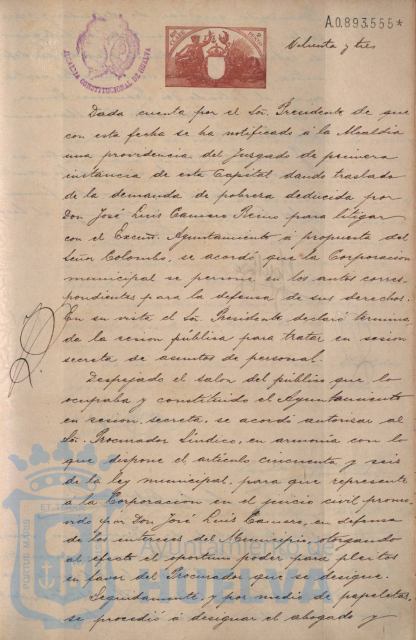 A.0.893.555*
ALCALDIA CONSTITUCIONAL DE HUELVA
y tres
Dada cuenta por el Sor. Presidente de que
con esta fecha se ha notificado á la Alcaldia
una providencia del Juzgado de primera
instancia de esta Capital dando traslado
de la demanda de pobreza deducida por
Don José Luis Camero Reino para litigar
con el Excmo. Ayuntamiento á propuesta del
Señor Colombo, se acordó que la Corporación
municipal se persone en los autos corres-
pondientes para la defensa de sus derechos.
En su vista el Sor. Presidente declaró termina-
da la sesion pública para tratar en sesion
secreta de asuntos de personal.
Despejado el salon del público que lo
ocupaba y constituido el Ayuntamiento
en sesion secreta, se acordó autorizar al
Sor. Procurador Síndico, en armonia con lo
que dispone el artículo cincuenta y seis
de la ley municipal, para que represente
á la Corporacion en el juicio civil promo-
vido por Don José Luis Camero, en defensa
de los intereses del Municipio, otorgando
al efecto el oportuno poder para pleitos
en favor del Procurador que se designe.
Seguidamente y por medio de papeletas,
se procedió á designar el abogado y
PORTUS MARIS
ET TERRAE
Ayuntamiento de
HUELVA